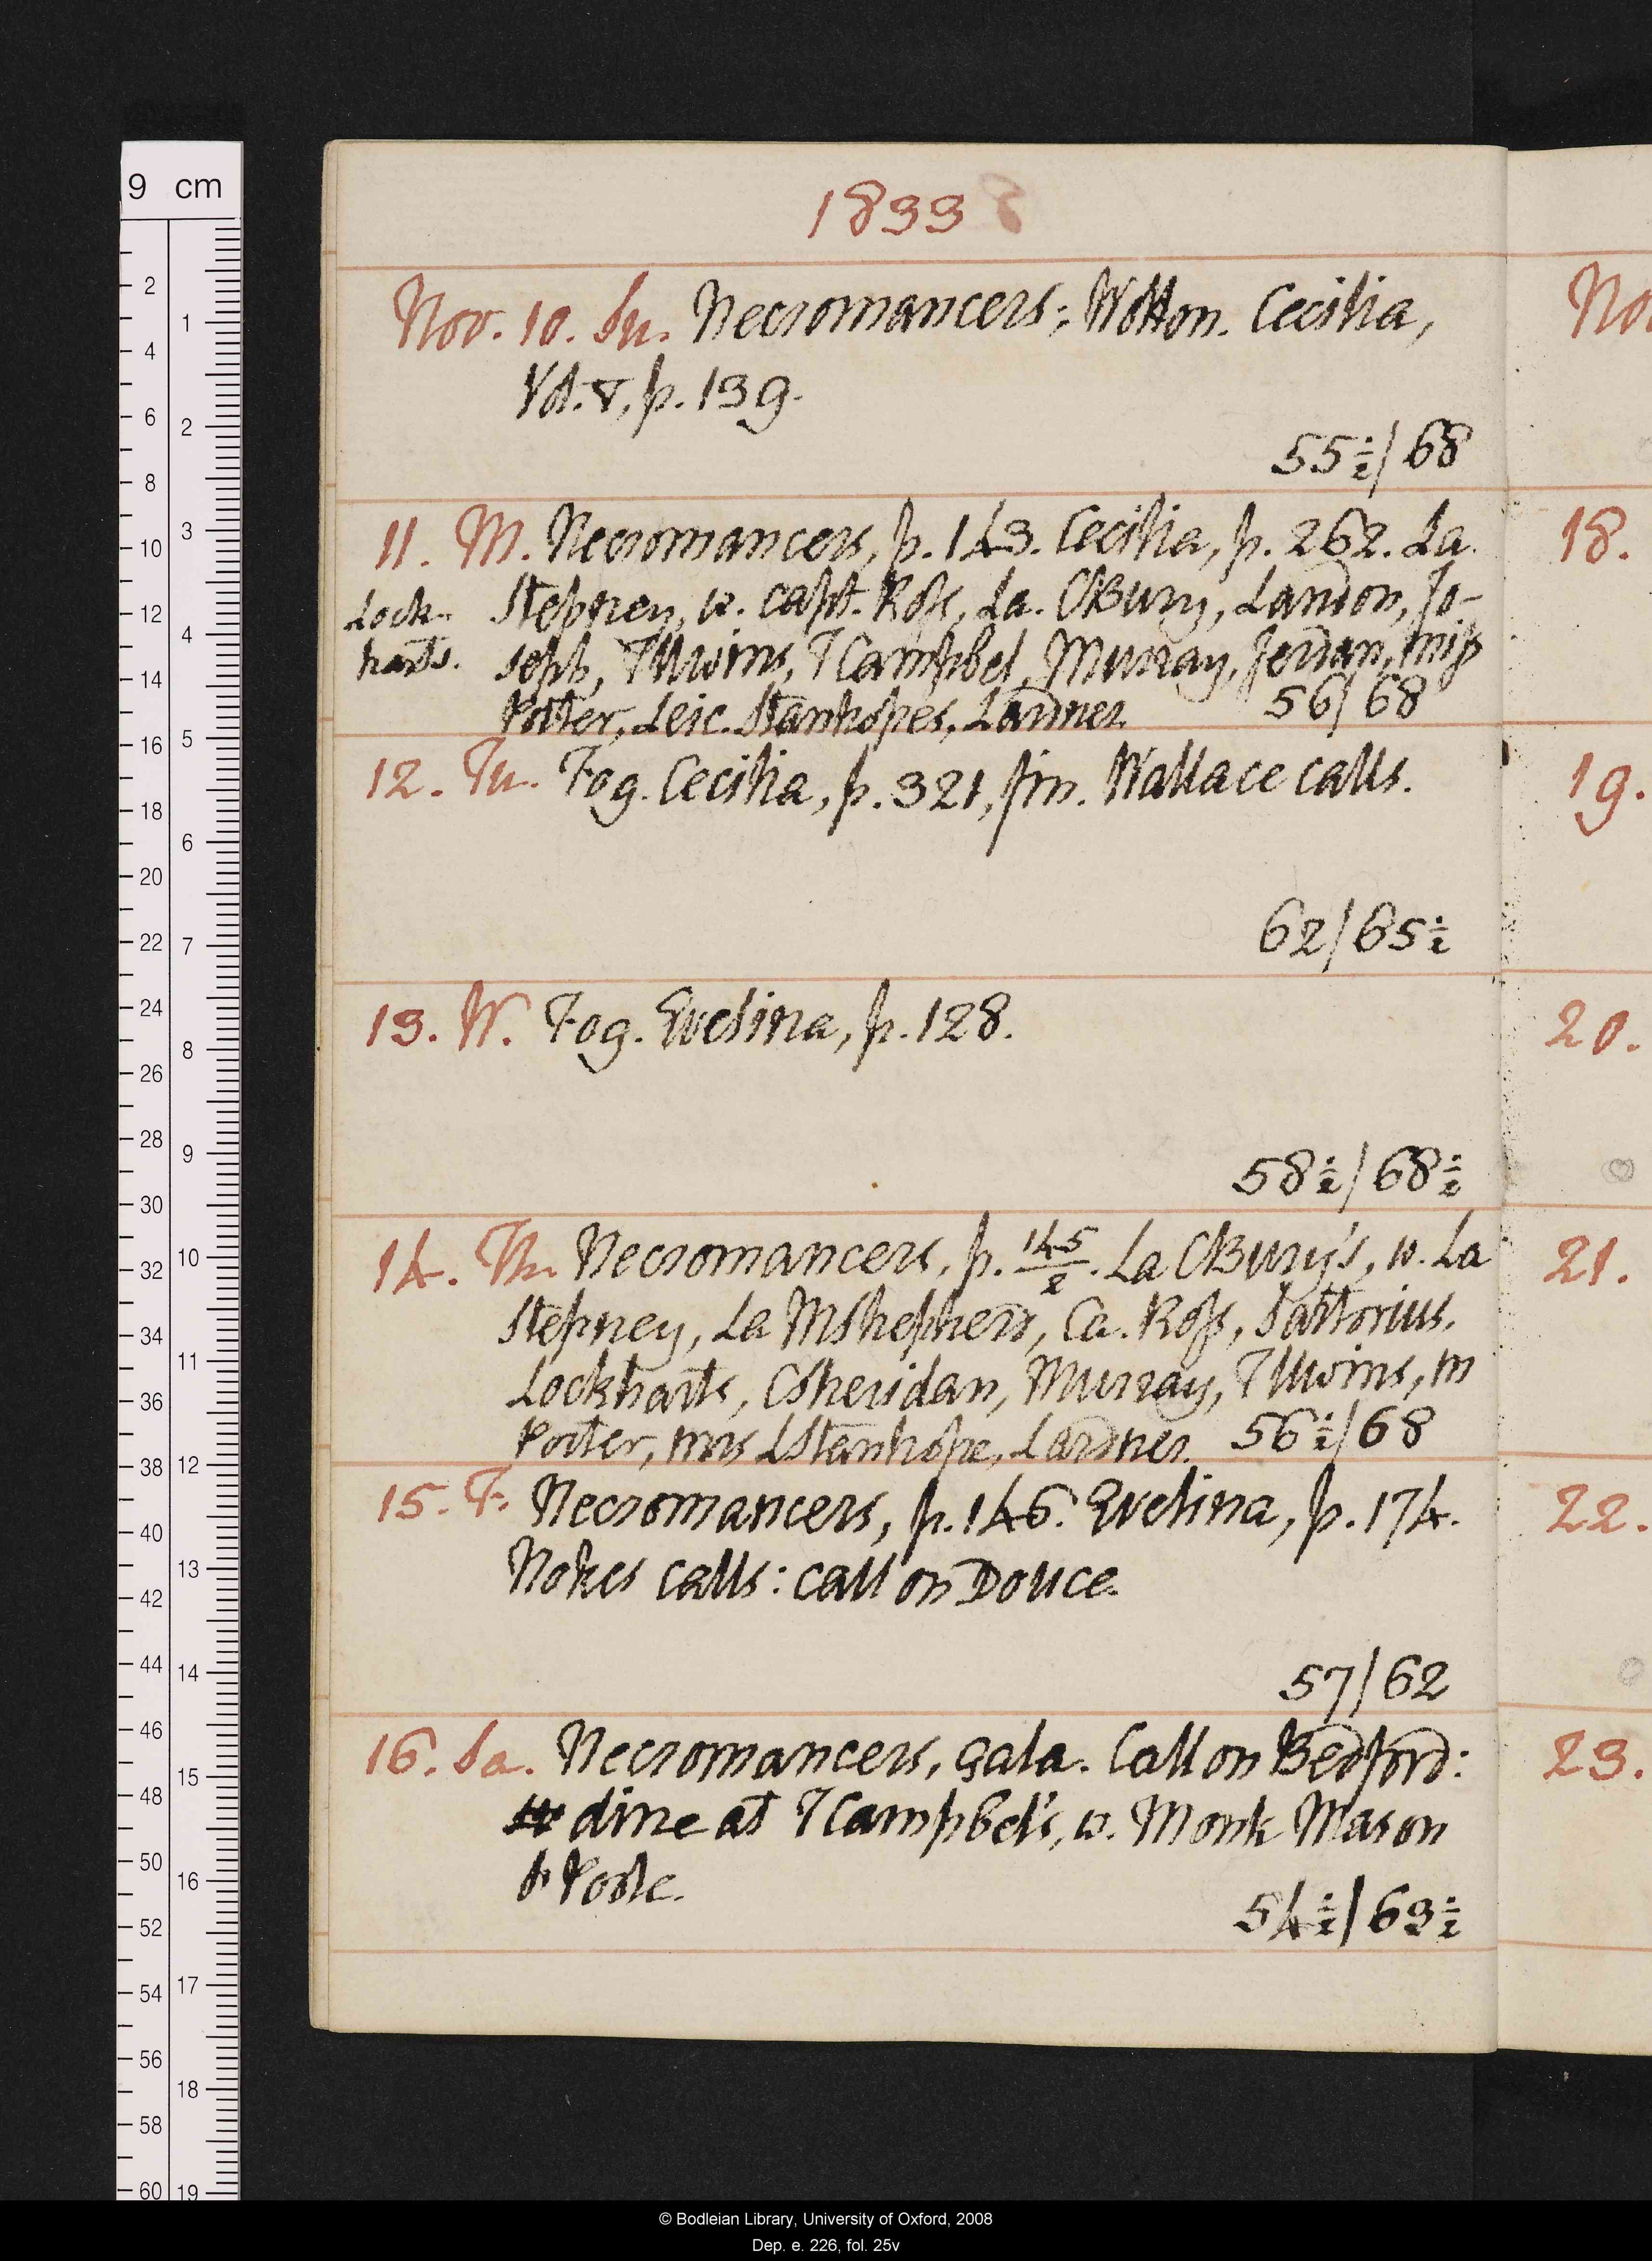 9 cm
1833
Nov. 10. Su. Necromancers; Wotton. Cecilia,
Vol. V, p. 139.
55½/68
11. M. Necromancers, p. 143. Cecilia, p. 262. La
Lock- Stepney, w. capt. Ross, La. CBury, Landon, Jo-
harts. seph, TUwins, TCampbel, Murray, Jerdan, miss
Porter, Leic. Stanhopes, Lardner. 56/68
12. Tu. Fog. Cecilia, p. 321, fin. Wallace calls.
62/65½
13. W. Fog. Evelina, p. 128.
58½/68½
14. Th. Necromancers, p. 145/2. La CBury's, w. La
Stepney, La MShepherd, Ca. Ross, Sartorius,
Lockharts, CSheridan, Murray, TUwins, m
Porter, mrs LStanhope, Lardner. 56½/68
15. F. Necromancers, p. 146. Evelina, p. 174.
Nokes calls: call on Douce.
57/62
16. Sa. Necromancers, gala. Call on Bedford:
dine at TCampbel's, w. Monk Mason
& Poole.
54½/63½
No
18.
19.
20.
21.
22.
23.
© Bodleian Library, University of Oxford, 2008
Dep. e. 226, fol. 25v